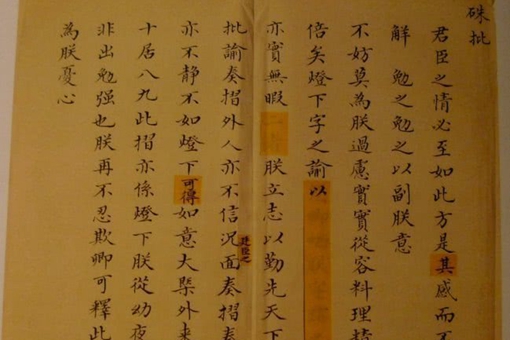 硃批
君臣之情必至如此方是其感而不
解 勉之勉之以副朕意
不妨莫為朕過慮實實從容料理精
倍矣燈下字之諭以
亦實無暇 朕立志以勤先天下
批諭奏摺外人亦不信況面奏摺奏
廷臣之
亦不静不如燈下可得如意大槩外来
十居八九此摺亦係燈下朕從幼夜
非出勉强也朕再不忍欺卿可釋此
為朕憂心